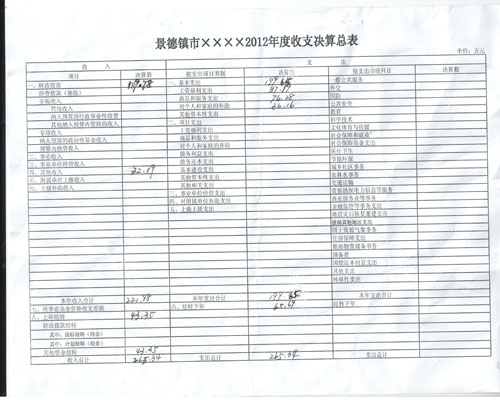 景德镇市××××2012年度收支决算总表
单位：万元
收 入 支 出
项目 决算数 按支出项目类别 决算数 按支出功能科目 决算数
一、财政拨款 一、基本支出 一般公共服务
经费拨款（补助） 工资福利支出 外交
非税收入 商品和服务支出 国防
罚没收入 对个人和家庭的补助 公共安全
纳入预算的行政事业性收费 其他资本性支出 教育
其他纳入预算内管理的收入 二、项目支出 科学技术
专项收入 工资福利支出 文化体育与传媒
纳入预算的政府性基金收入 商品和服务支出 社会保障和就业
预算内投资收入 对个人和家庭的补助 社会保险基金支出
二、事业收入 债务利息支出 医疗卫生
三、事业单位经营收入 债务还本支出 节能环保
四、其他收入 22.19 基本建设支出 城乡社区事务
五、附属单位上缴收入 其他资本性支出 农林水事务
六、上级补助收入 其他相关支出 交通运输
三、事业单位经营支出 资源勘探电力信息等服务
四、对附属单位补助支出 商业服务业等事务
五、上缴上级支出 金融监管等事务支出
地震灾后恢复重建支出
援助其他地区支出
国土资源气象事务
住房保障支出
粮油物资储备事务
预备费
国债还本付息支出
其他支出
转移性支出
本年收入合计 221.98 本年支出合计 本年支出合计
七、用事业基金弥补收支差额 六、结转下年 65.69 结转下年
八、上年结转 43.35
财政拨款结转
其中：指标结转（结余）
其中：计划结转（结余）
其他资金结转 43.35
收入总计 265.34 支出总计 265.34 支出总计